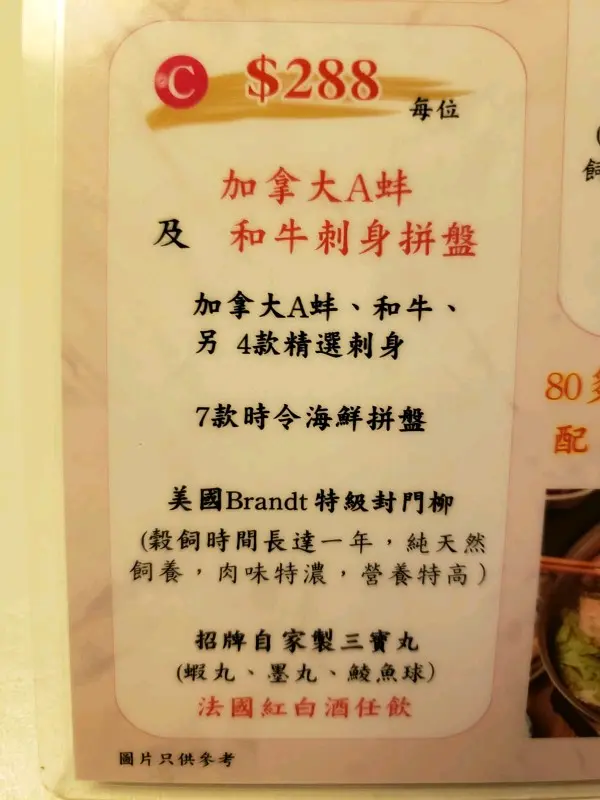 C $288 每位
加拿大A蚌
及 和牛刺身拼盤
加拿大A蚌、和牛、
另 4款精選刺身
7款時令海鮮拼盤
美國Brandt 特級封門柳
(穀飼時間長達一年，純天然
飼養，肉味特濃，營養特高)
招牌自家製三寶丸
(蝦丸、墨丸、鯪魚球)
法國紅白酒任飲
圖片只供參考
(
飼
80
配